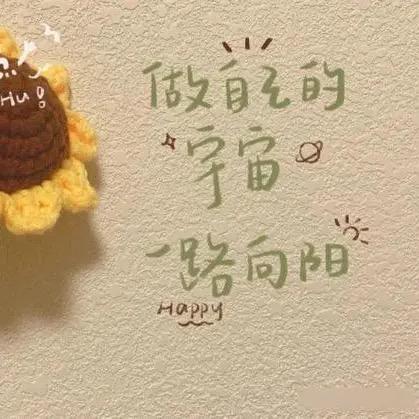 Hu!
做自己的
宇宙
一路向阳
Happy